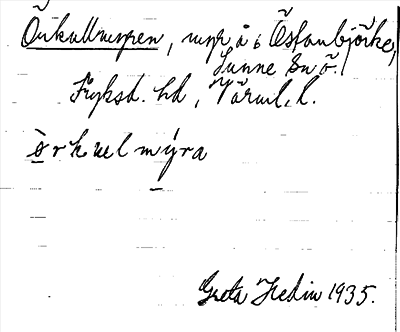 Örkullmyren, myr å ö Östanbjörke,
Sunne sn ö.
Fryksd. hd, Värml. l.
òrkuelmýra
Greta Hedin 1935.